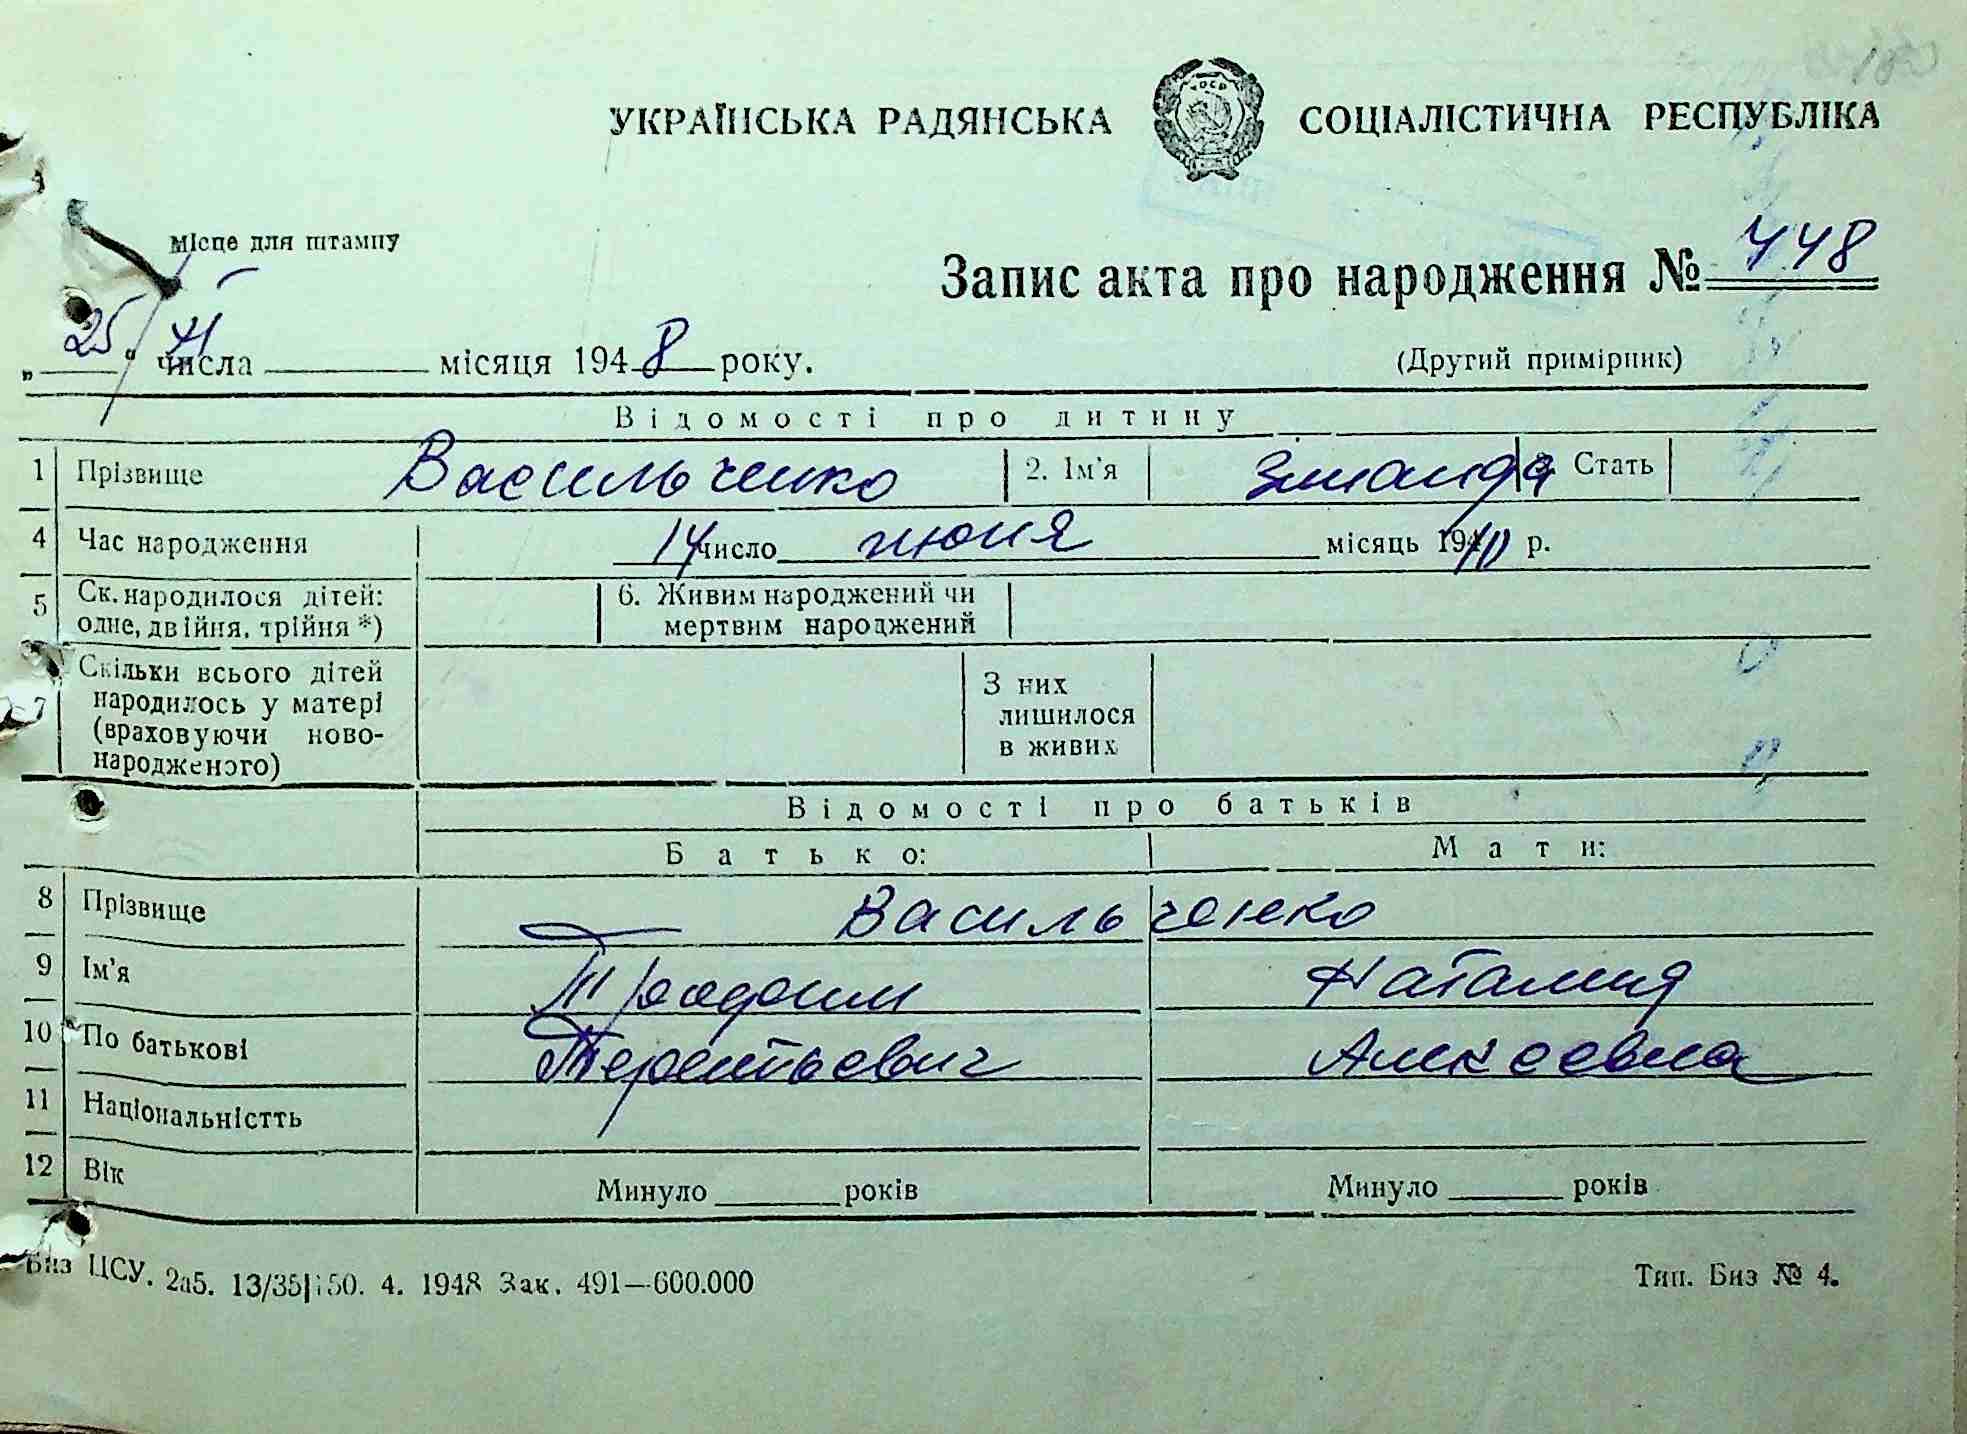 УКРАЇНСЬКА РАДЯНСЬКА СОЦІАЛІСТИЧНА РЕСПУБЛІКА
Місце для штампу
Запис акта про народження № 448
„25“ числа місяця 1948 року.
(Другий примірник)
Відомості про дитину
1 Прізвище Васильченко 2. Ім'я Зинаида 3. Стать
4 Час народження 14 число июня місяць 1940 р.
5 Ск. народилося дітей: 6. Живим народжений чи
одне, двійня, трійня *) мертвим народжений
7 Скільки всього дітей З них
народилось у матері лишилося
(враховуючи ново- в живих
народженого)
Відомості про батьків
Батько: Мати:
8 Прізвище Васильченко
9 Ім'я Трофим Наталия
10 По батькові Терентьевич Алексеевна
11 Національністть
12 Вік Минуло років Минуло років
Биз ЦСУ. 2а5. 13/35 50. 4. 1948 Зак. 491—600.000
Тип. Биз № 4.